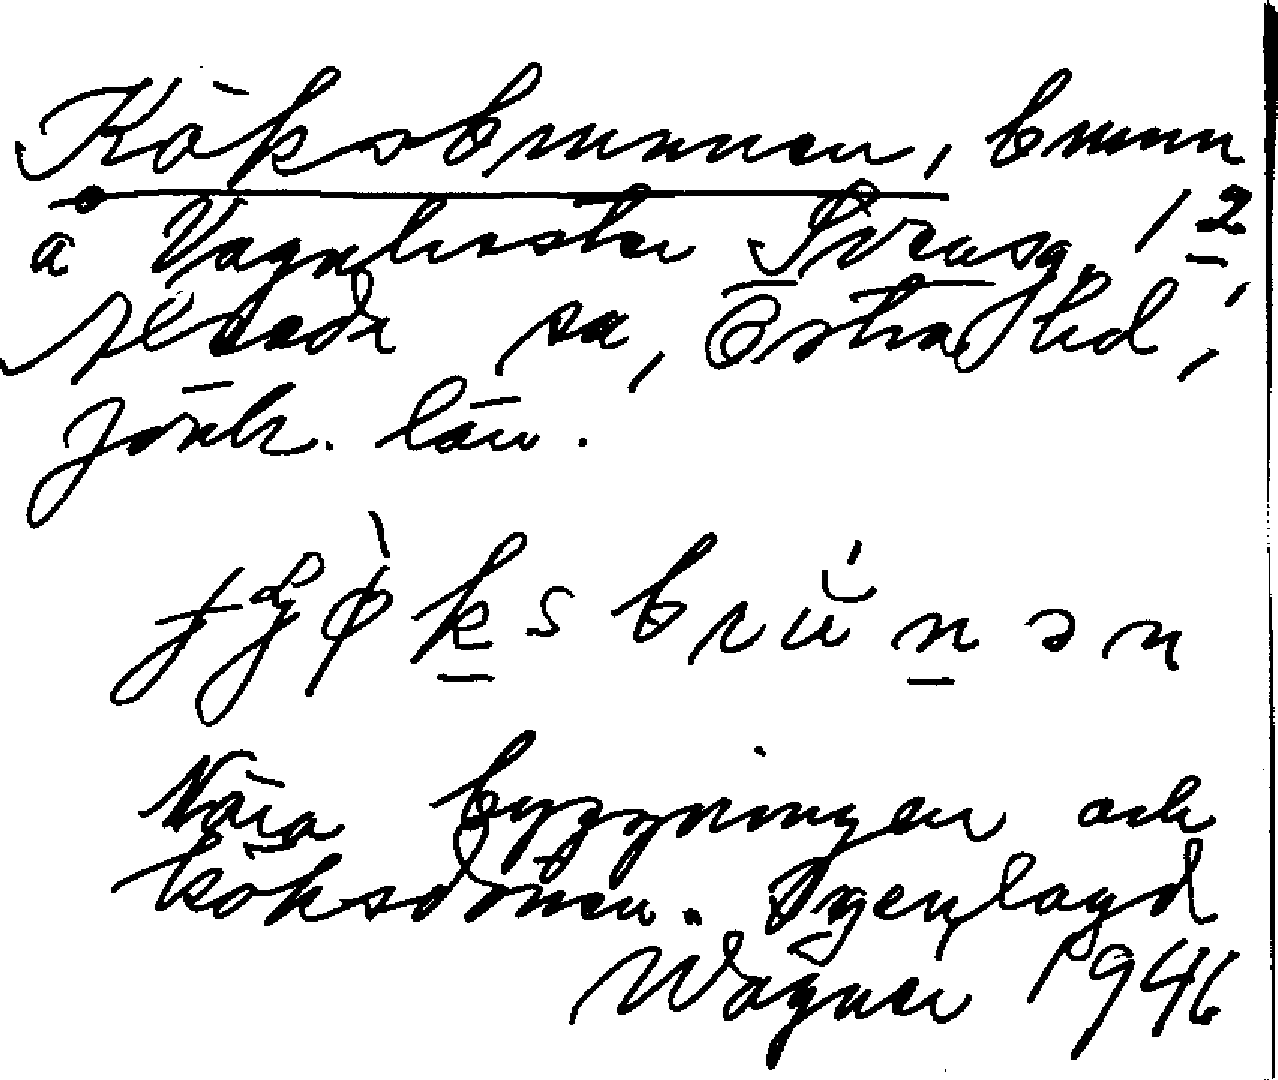 Köksbrunnen, brunn
å Vagnhester Sörensg. 1 2,
Flisada sn, Östra hd,
Jönk. län.
köksbrunən
Nära byggningen och
köksdörren. Igenlagd
Wågner 1946